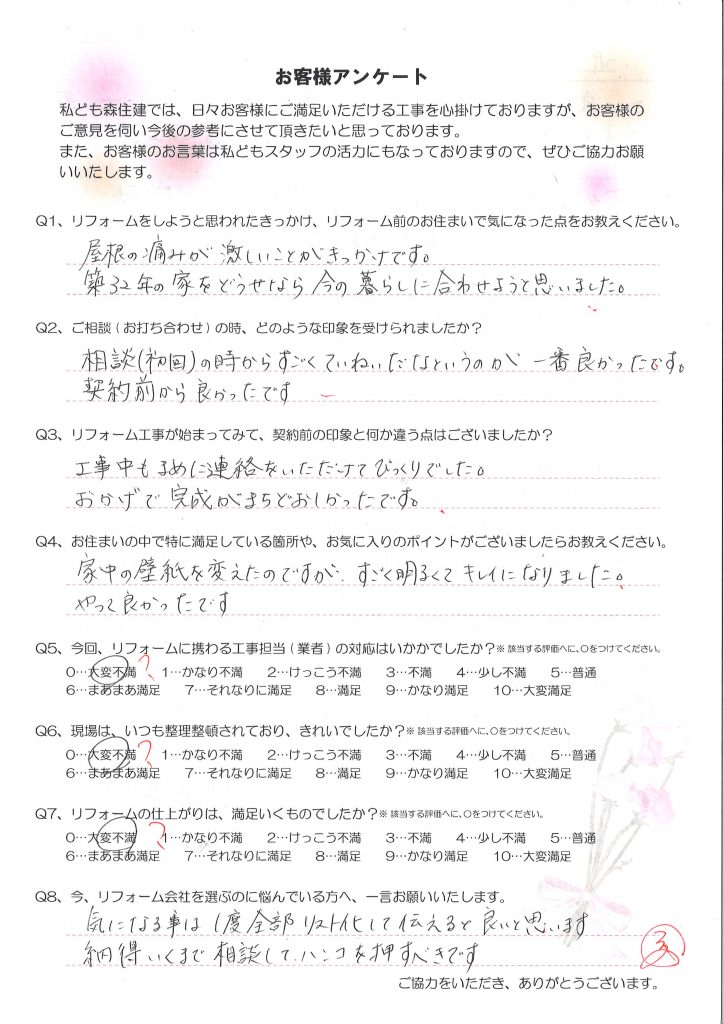 お客様アンケート
私ども森住建では、日々お客様にご満足いただける工事を心掛けておりますが、お客様の
ご意見を伺い今後の参考にさせて頂きたいと思っております。
また、お客様のお言葉は私どもスタッフの活力にもなっておりますので、ぜひご協力お願
いいたします。
Q1、リフォームをしようと思われたきっかけ、リフォーム前のお住まいで気になった点をお教えください。
屋根の痛みが激しいことがきっかけです。
築32年の家をどうせなら今の暮らしに合わせようと思いました。
Q2、ご相談(お打ち合わせ)の時、どのような印象を受けられましたか?
相談(初回)の時からすごくていねいだなというのが一番良かったです。
契約前から良かったです
Q3、リフォーム工事が始まってみて、契約前の印象と何か違う点はございましたか?
工事中もまめに連絡をいただけてびっくりでした。
おかげで完成がまちどおしかったです。
Q4、お住まいの中で特に満足している箇所や、お気に入りのポイントがございましたらお教えください。
家中の壁紙を変えたのですが、すごく明るくてキレイになりました。
やって良かったです
Q5、今回、リフォームに携わる工事担当(業者)の対応はいかかでしたか?※該当する評価へに、○をつけてください。
0…大変不満? 1…かなり不満 2…けっこう不満 3…不満 4…少し不満 5…普通
6…まあまあ満足 7…それなりに満足 8…満足 9…かなり満足 10…大変満足
Q6、現場は、いつも整理整頓されており、きれいでしたか?※該当する評価へに、○をつけてください。
0…大変不満? 1…かなり不満 2…けっこう不満 3…不満 4…少し不満 5…普通
6…まあまあ満足 7…それなりに満足 8…満足 9…かなり満足 10…大変満足
Q7、リフォームの仕上がりは、満足いくものでしたか?※該当する評価へに、○をつけてください。
0…大変不満? 1…かなり不満 2…けっこう不満 3…不満 4…少し不満 5…普通
6…まあまあ満足 7…それなりに満足 8…満足 9…かなり満足 10…大変満足
Q8、今、リフォーム会社を選ぶのに悩んでいる方へ、一言お願いいたします。
気になる事は1度全部リスト化して伝えると良いと思います
納得いくまで相談して、ハンコを押すべきです
ご協力をいただき、ありがとうございます。